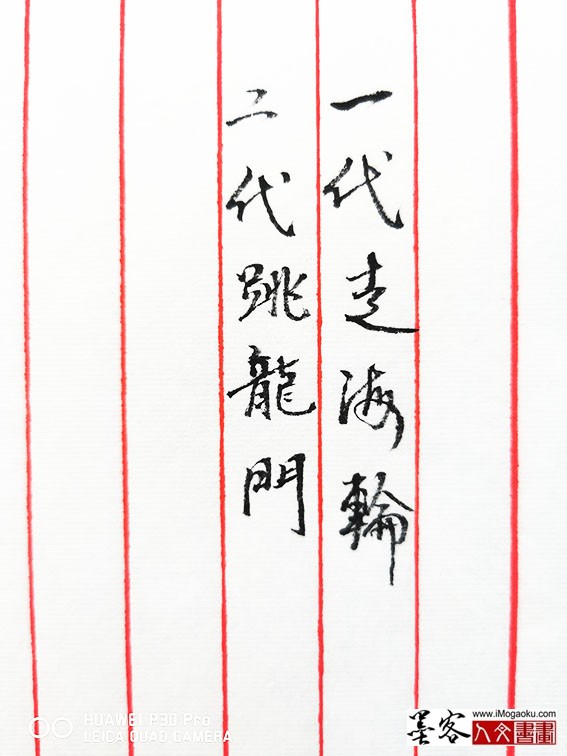 一代走海輪
二代跳龍門
HUAWEI P30 Pro
LEICA QUAD CAMERA
墨客
www.iMogaoku.com
人文書畫